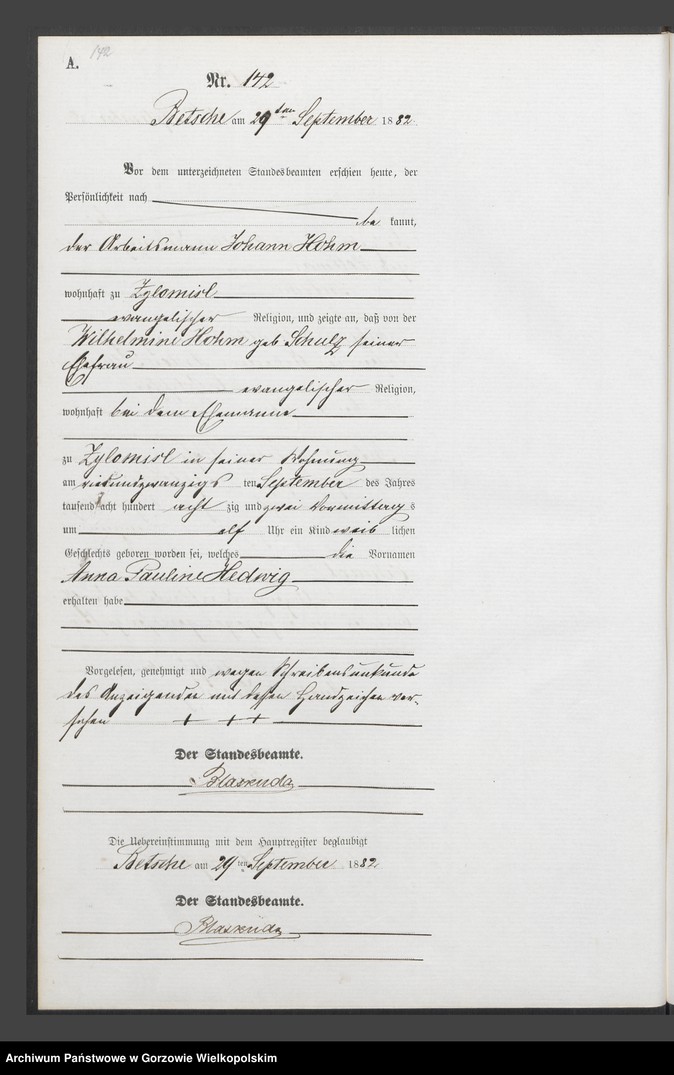 142
A.
Nr. 142
Betsche am 29ten September 1882
Vor dem unterzeichneten Standesbeamten erschien heute, der
Persönlichkeit nach
be kannt,
der Arbeitsmann Johann Hohm
wohnhaft zu Zylomisl
evangelischer Religion, und zeigte an, daß von der
Wilhelmine Hohm geb Schulz seiner
Ehefrau
evangelischer Religion,
wohnhaft bei dem Ehemanne
zu Zylomisl in seiner Wohnung
am vierundzwanzigs ten September des Jahres
tausend acht hundert acht zig und zwei Vormittag s
um elf Uhr ein Kind weib lichen
Geschlechts geboren worden sei, welches die Vornamen
Anna Pauline Hedwig
erhalten habe
Vorgelesen, genehmigt und wegen Schreibensunkunde
des Anzeigenden mit dessen Handzeichen ver-
sehen + + +
Der Standesbeamte.
Blaskuda
Die Uebereinstimmung mit dem Hauptregister beglaubigt
Betsche am 29ten September 1882
Der Standesbeamte.
Blaskuda
Archiwum Państwowe w Gorzowie Wielkopolskim